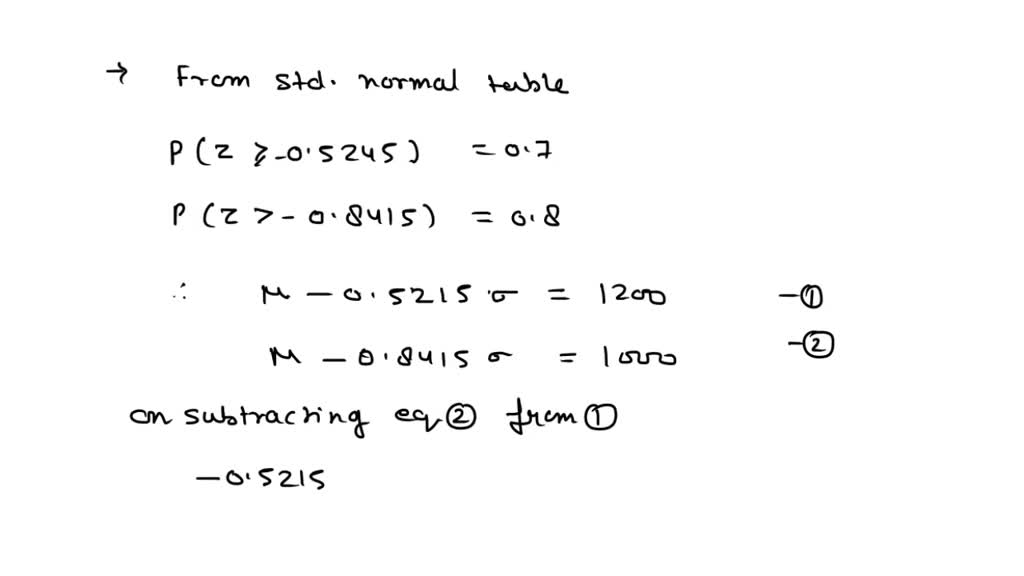 → From std. normal table
P(Z ≥ -0.5245) = 0.7
P(Z > -0.8415) = 0.8
∴ μ - 0.5215 σ = 1200 -①
μ - 0.8415 σ = 1000 -②
on subtracting eq ② from ①
-0.5215